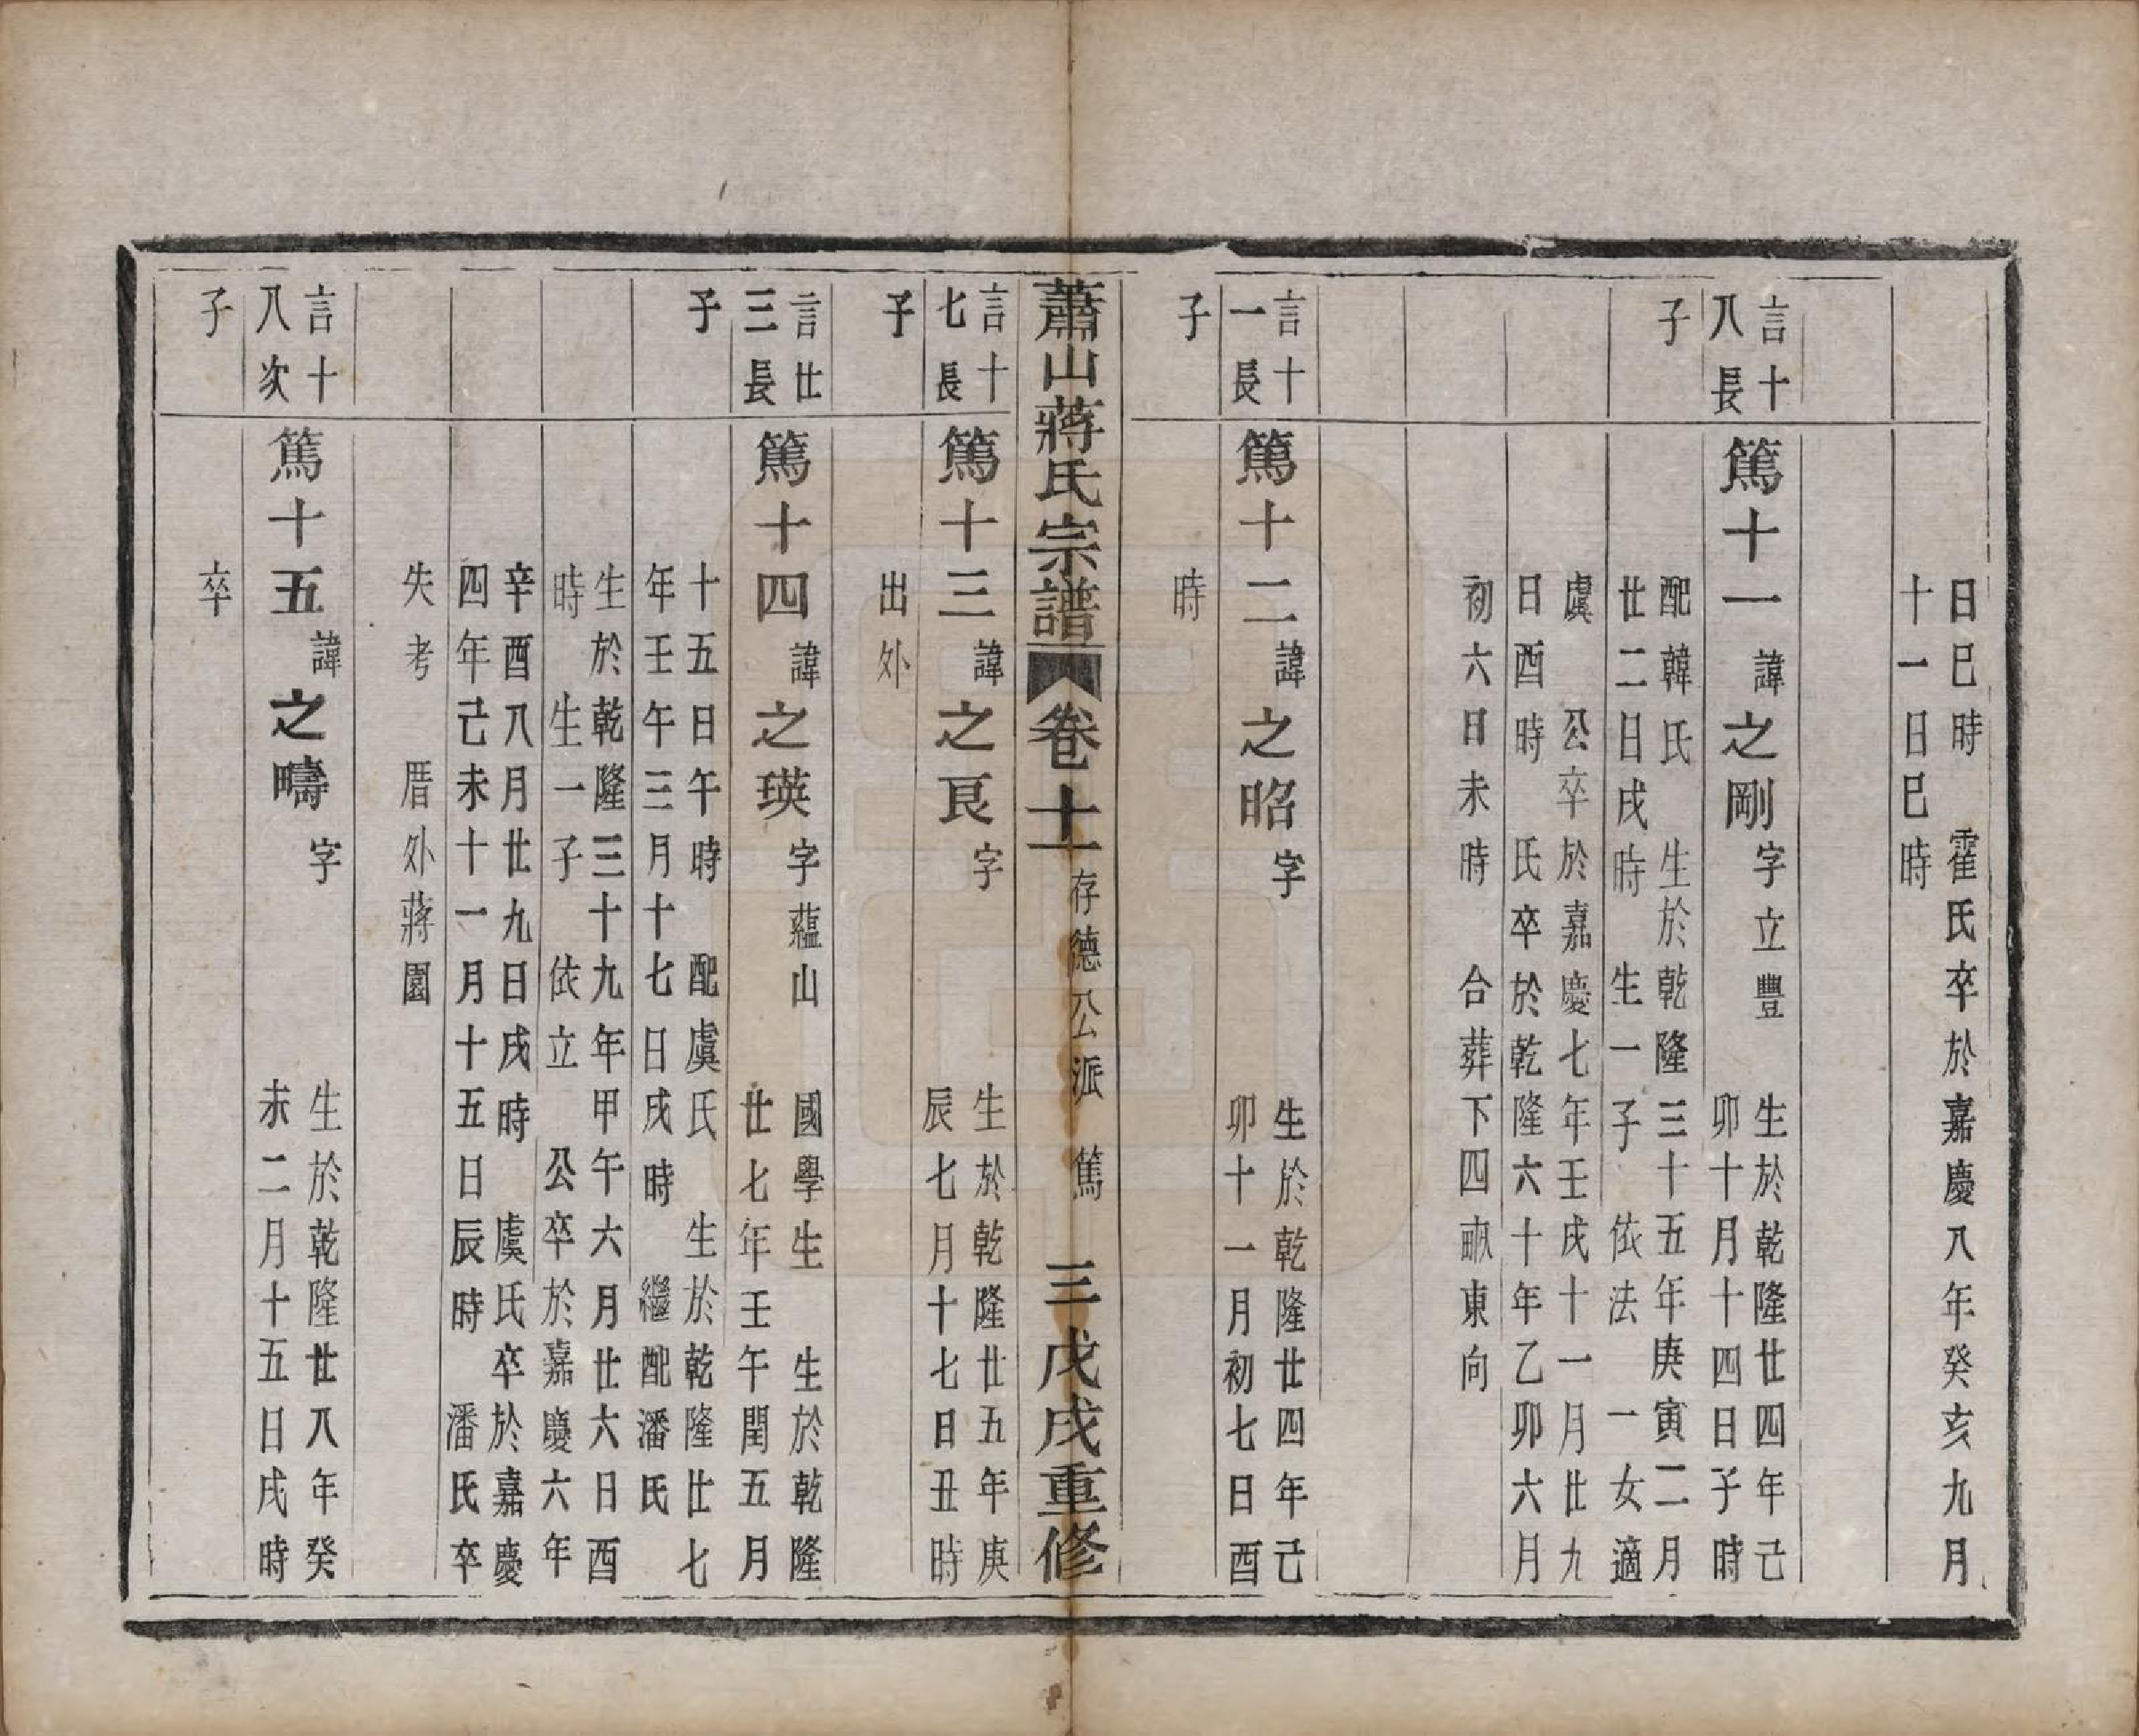 日巳時　霍氏卒於嘉慶八年癸亥九月
十一日巳時
言十
八長
子
篤十一
諱
之剛
字立豐
生於乾隆廿四年己
卯十月十四日子時
配韓氏　生於乾隆三十五年庚寅二月
廿二日戌時　生一子　依法　一女適
虞　公卒於嘉慶七年壬戌十一月廿九
日酉時　氏卒於乾隆六十年乙卯六月
初六日未時　合葬下四畝東向
言十
一長
子
篤十二
諱
之昭
字
生於乾隆廿四年己
卯十一月初七日酉
時
蕭山蔣氏宗譜
卷十一
存德公派　篤
三
戊戌重修
言十
七長
子
篤十三
諱
之良
字
生於乾隆廿五年庚
辰七月十七日丑時
出外
言廿
三長
子
篤十四
諱
之瑛
字蘊山　國學生　生於乾隆
廿七年壬午閏五月
十五日午時　配虞氏　生於乾隆廿七
年壬午三月十七日戌時　繼配潘氏
生於乾隆三十九年甲午六月廿六日酉
時　生一子　依立　公卒於嘉慶六年
辛酉八月廿九日戌時　虞氏卒於嘉慶
四年己未十一月十五日辰時　潘氏卒
失考　厝外蔣園
言十
八次
子
篤十五
諱
之疇
字
生於乾隆廿八年癸
未二月十五日戌時
卒